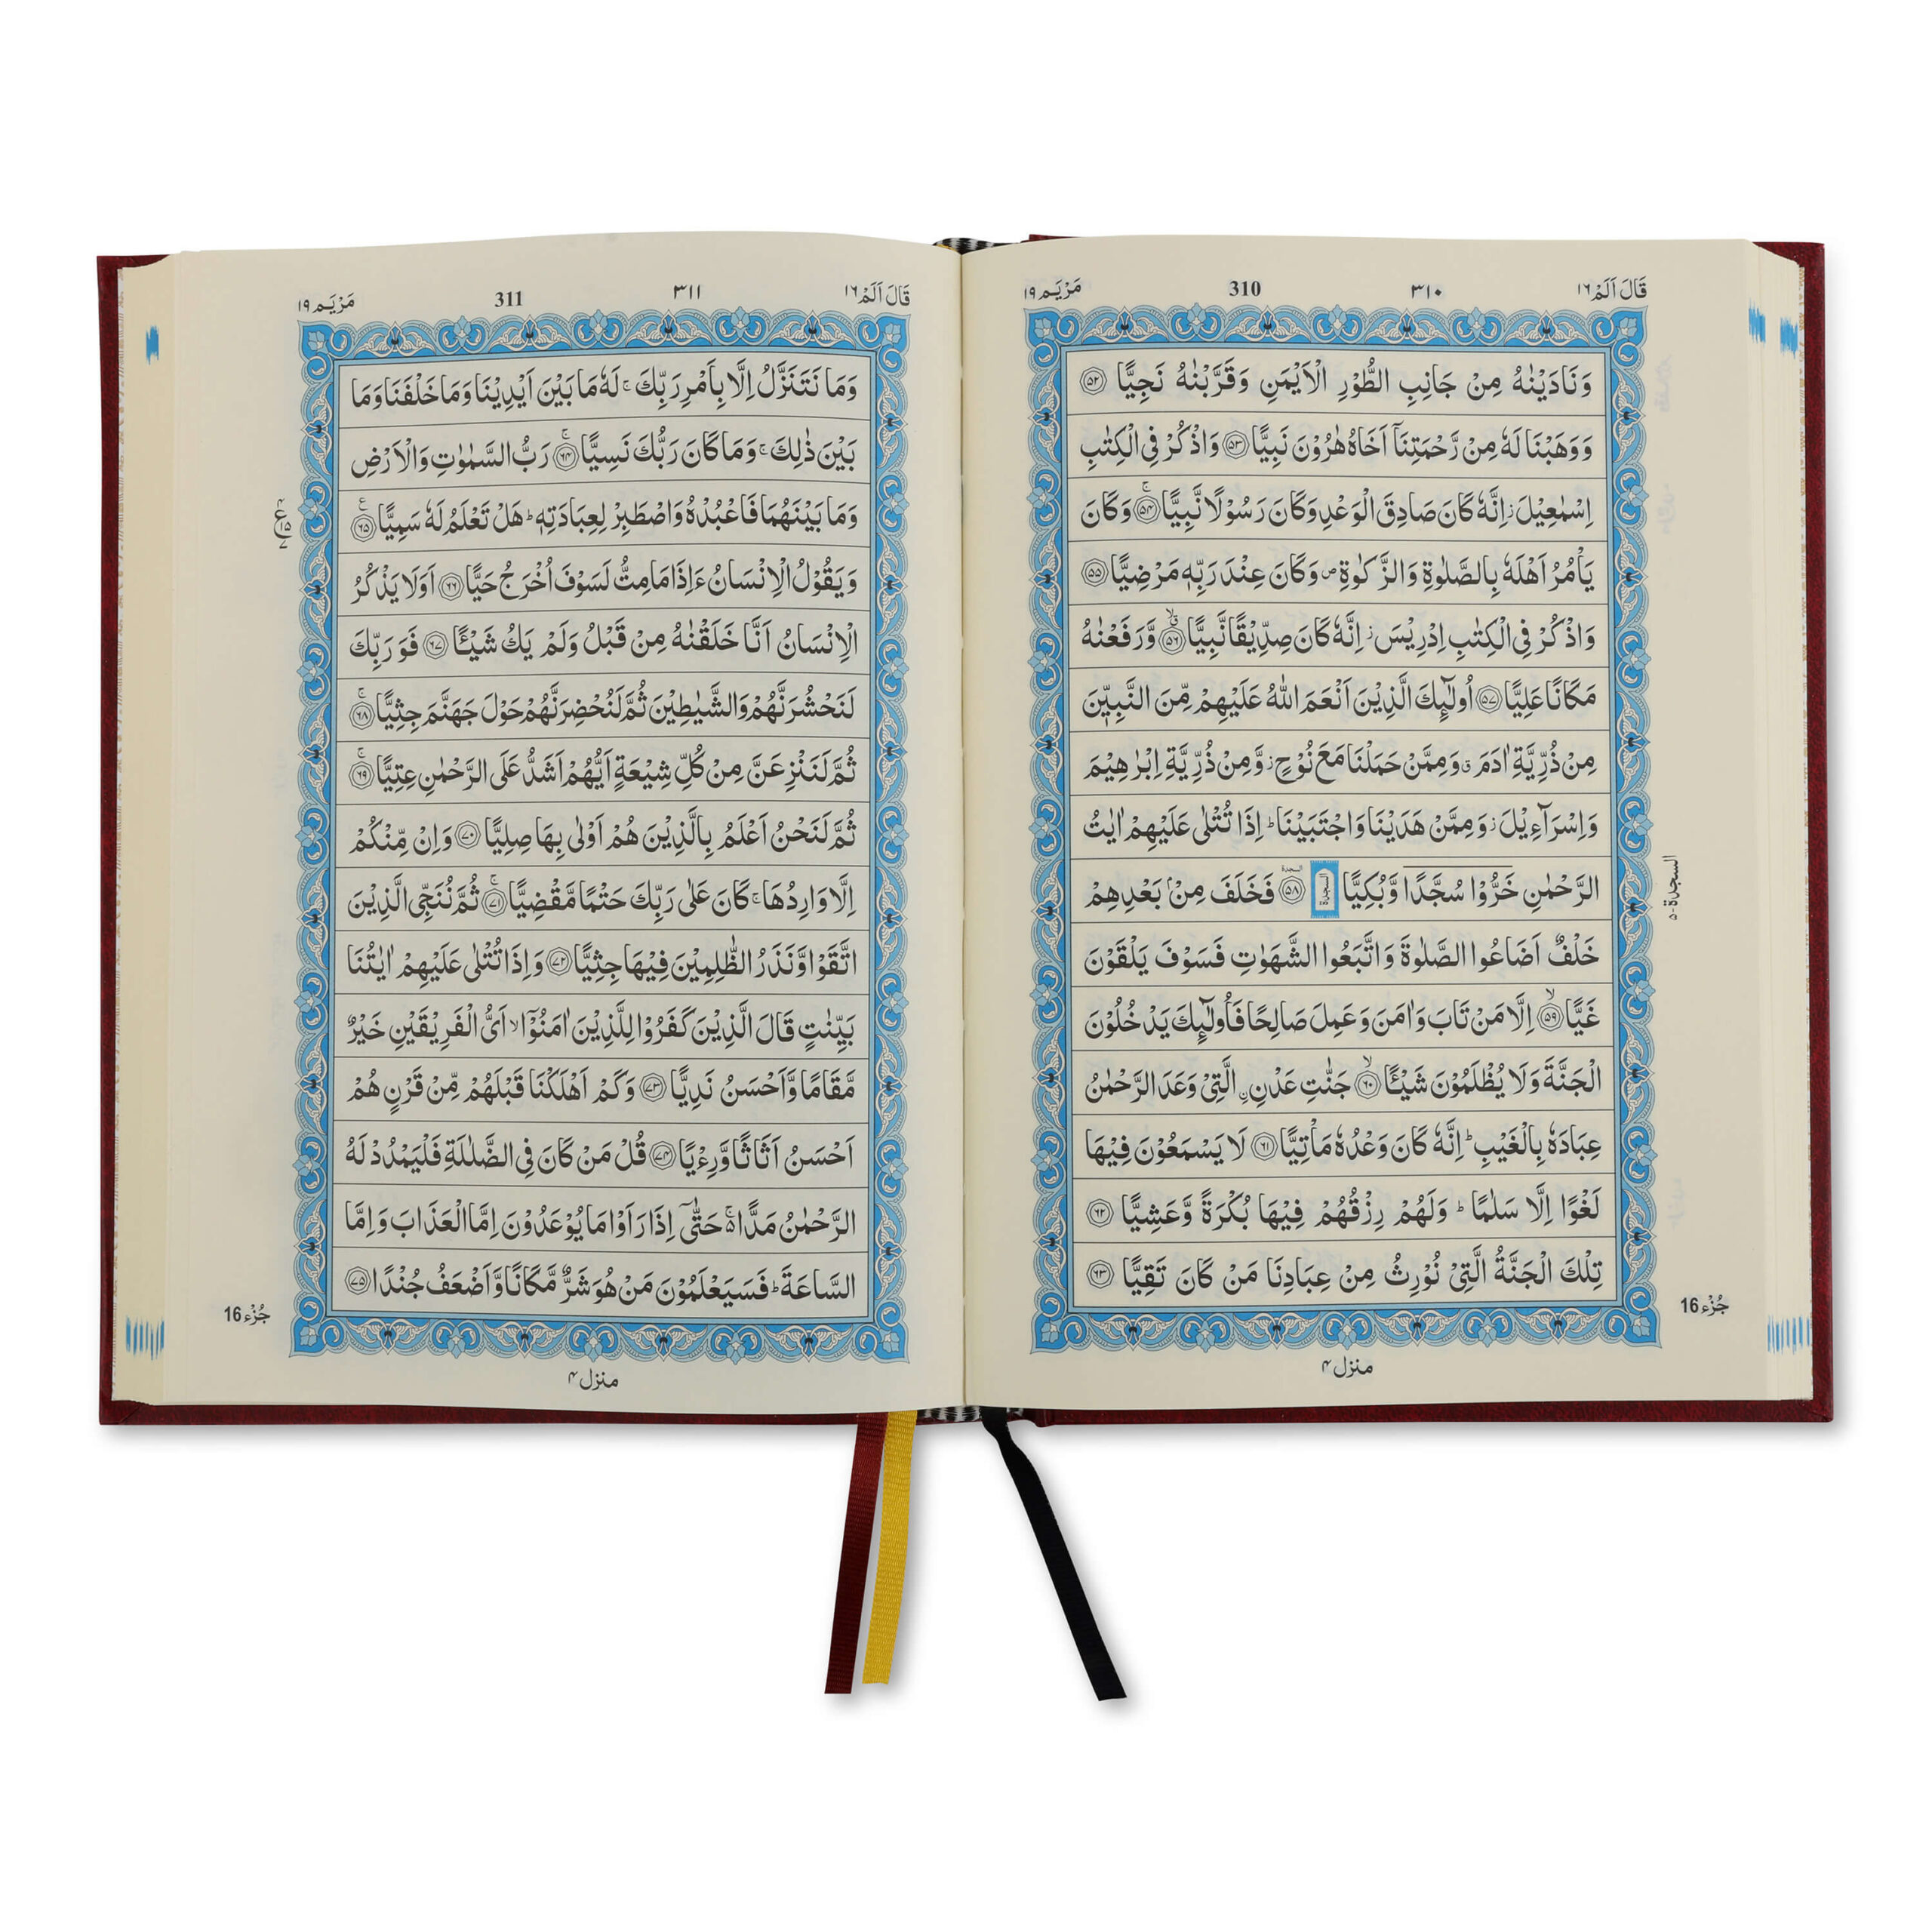 قَالَ اَلَمْ ١٦ ٣١٠ 310 مَرْيَم ١٩
وَنَادَيْنٰهُ مِنْ جَانِبِ الطُّوْرِ الْاَيْمَنِ وَقَرَّبْنٰهُ نَجِيًّا ۝۵۲
وَوَهَبْنَا لَهٗ مِنْ رَّحْمَتِنَاۤ اَخَاهُ هٰرُوْنَ نَبِيًّا ۝۵۳ وَاذْكُرْ فِي الْكِتٰبِ
اِسْمٰعِيْلَ ز اِنَّهٗ كَانَ صَادِقَ الْوَعْدِ وَكَانَ رَسُوْلًا نَّبِيًّا ۝۵۴ۚ وَكَانَ
يَاْمُرُ اَهْلَهٗ بِالصَّلٰوةِ وَالزَّكٰوةِ ص وَكَانَ عِنْدَ رَبِّهٖ مَرْضِيًّا ۝۵۵
وَاذْكُرْ فِي الْكِتٰبِ اِدْرِيْسَ ز اِنَّهٗ كَانَ صِدِّيْقًا نَّبِيًّا ۝۵۶ وَّرَفَعْنٰهُ
مَكَانًا عَلِيًّا ۝۵۷ اُولٰٓئِكَ الَّذِيْنَ اَنْعَمَ اللّٰهُ عَلَيْهِمْ مِّنَ النَّبِيّٖنَ
مِنْ ذُرِّيَّةِ اٰدَمَ ق وَمِمَّنْ حَمَلْنَا مَعَ نُوْحٍ ز وَّمِنْ ذُرِّيَّةِ اِبْرٰهِيْمَ
وَاِسْرَآءِيْلَ ز وَمِمَّنْ هَدَيْنَا وَاجْتَبَيْنَا ط اِذَا تُتْلٰى عَلَيْهِمْ اٰيٰتُ
الرَّحْمٰنِ خَرُّوْا سُجَّدًا وَّبُكِيًّا السجدة ۝۵۸ فَخَلَفَ مِنْۢ بَعْدِهِمْ
السجدة-۵
خَلْفٌ اَضَاعُوا الصَّلٰوةَ وَاتَّبَعُوا الشَّهَوٰتِ فَسَوْفَ يَلْقَوْنَ
غَيًّا ۝۵۹ۙ اِلَّا مَنْ تَابَ وَاٰمَنَ وَعَمِلَ صَالِحًا فَاُولٰٓئِكَ يَدْخُلُوْنَ
الْجَنَّةَ وَلَا يُظْلَمُوْنَ شَيْـًٔا ۝۶۰ۙ جَنّٰتِ عَدْنِ ۨ الَّتِيْ وَعَدَ الرَّحْمٰنُ
عِبَادَهٗ بِالْغَيْبِ ط اِنَّهٗ كَانَ وَعْدُهٗ مَاْتِيًّا ۝۶۱ لَا يَسْمَعُوْنَ فِيْهَا
لَغْوًا اِلَّا سَلٰمًا ط وَلَهُمْ رِزْقُهُمْ فِيْهَا بُكْرَةً وَّعَشِيًّا ۝۶۲
تِلْكَ الْجَنَّةُ الَّتِيْ نُوْرِثُ مِنْ عِبَادِنَا مَنْ كَانَ تَقِيًّا ۝۶۳
جُزْء 16
منزل ۴
قَالَ اَلَمْ ١٦ ٣١١ 311 مَرْيَم ١٩
وَمَا نَتَنَزَّلُ اِلَّا بِاَمْرِ رَبِّكَ ۚ لَهٗ مَا بَيْنَ اَيْدِيْنَا وَمَا خَلْفَنَا وَمَا
بَيْنَ ذٰلِكَ ۚ وَمَا كَانَ رَبُّكَ نَسِيًّا ۝۶۴ۚ رَبُّ السَّمٰوٰتِ وَالْاَرْضِ
وَمَا بَيْنَهُمَا فَاعْبُدْهُ وَاصْطَبِرْ لِعِبَادَتِهٖ ط هَلْ تَعْلَمُ لَهٗ سَمِيًّا ۝۶۵
وَيَقُوْلُ الْاِنْسَانُ ءَاِذَا مَا مِتُّ لَسَوْفَ اُخْرَجُ حَيًّا ۝۶۶ اَوَلَا يَذْكُرُ
الْاِنْسَانُ اَنَّا خَلَقْنٰهُ مِنْ قَبْلُ وَلَمْ يَكُ شَيْـًٔا ۝۶۷ فَوَرَبِّكَ
لَنَحْشُرَنَّهُمْ وَالشَّيٰطِيْنَ ثُمَّ لَنُحْضِرَنَّهُمْ حَوْلَ جَهَنَّمَ جِثِيًّا ۝۶۸ۚ
ثُمَّ لَنَنْزِعَنَّ مِنْ كُلِّ شِيْعَةٍ اَيُّهُمْ اَشَدُّ عَلَى الرَّحْمٰنِ عِتِيًّا ۝۶۹ۚ
ثُمَّ لَنَحْنُ اَعْلَمُ بِالَّذِيْنَ هُمْ اَوْلٰى بِهَا صِلِيًّا ۝۷۰ وَاِنْ مِّنْكُمْ
اِلَّا وَارِدُهَا ۚ كَانَ عَلٰى رَبِّكَ حَتْمًا مَّقْضِيًّا ۝۷۱ۚ ثُمَّ نُنَجِّي الَّذِيْنَ
اتَّقَوْا وَّنَذَرُ الظّٰلِمِيْنَ فِيْهَا جِثِيًّا ۝۷۲ وَاِذَا تُتْلٰى عَلَيْهِمْ اٰيٰتُنَا
بَيِّنٰتٍ قَالَ الَّذِيْنَ كَفَرُوْا لِلَّذِيْنَ اٰمَنُوْۤا لا اَيُّ الْفَرِيْقَيْنِ خَيْرٌ
مَّقَامًا وَّاَحْسَنُ نَدِيًّا ۝۷۳ وَكَمْ اَهْلَكْنَا قَبْلَهُمْ مِّنْ قَرْنٍ هُمْ
اَحْسَنُ اَثَاثًا وَّرِءْيًا ۝۷۴ قُلْ مَنْ كَانَ فِي الضَّلٰلَةِ فَلْيَمْدُدْ لَهُ
الرَّحْمٰنُ مَدًّا ۵ۚ حَتّٰۤى اِذَا رَاَوْا مَا يُوْعَدُوْنَ اِمَّا الْعَذَابَ وَاِمَّا
السَّاعَةَ ط فَسَيَعْلَمُوْنَ مَنْ هُوَ شَرٌّ مَّكَانًا وَّاَضْعَفُ جُنْدًا ۝۷۵
جُزْء 16
منزل ۴